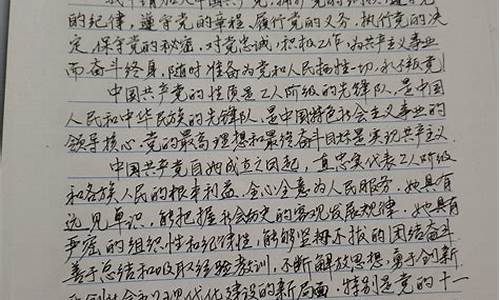 的纪律，遵守党的章程，履行党的义务，执行党的决
定，保守党的秘密，对党忠诚，积极工作，为共产主义事业
而奋斗终身，随时准备为党和人民牺牲一切，永不叛党！
中国共产党的性质是工人阶级的先锋队，是中国
人民和中华民族的先锋队，是中国特色社会主义事业的
领导核心。党的最高理想和最终奋斗目标是实现共产主义。
中国共产党自她成立之日起，直忠实代表工人阶级
和各族人民的根本利益，全心全意为人民服务。她具有
远见卓识，能把握社会历史的客观发展规律。她具有
严密的组织性和纪律性，能够坚持不拔的团结奋斗
善于总结和吸取经验教训，不断解放思想，勇于创新，
现代化建设的新局面，特别是党的十一